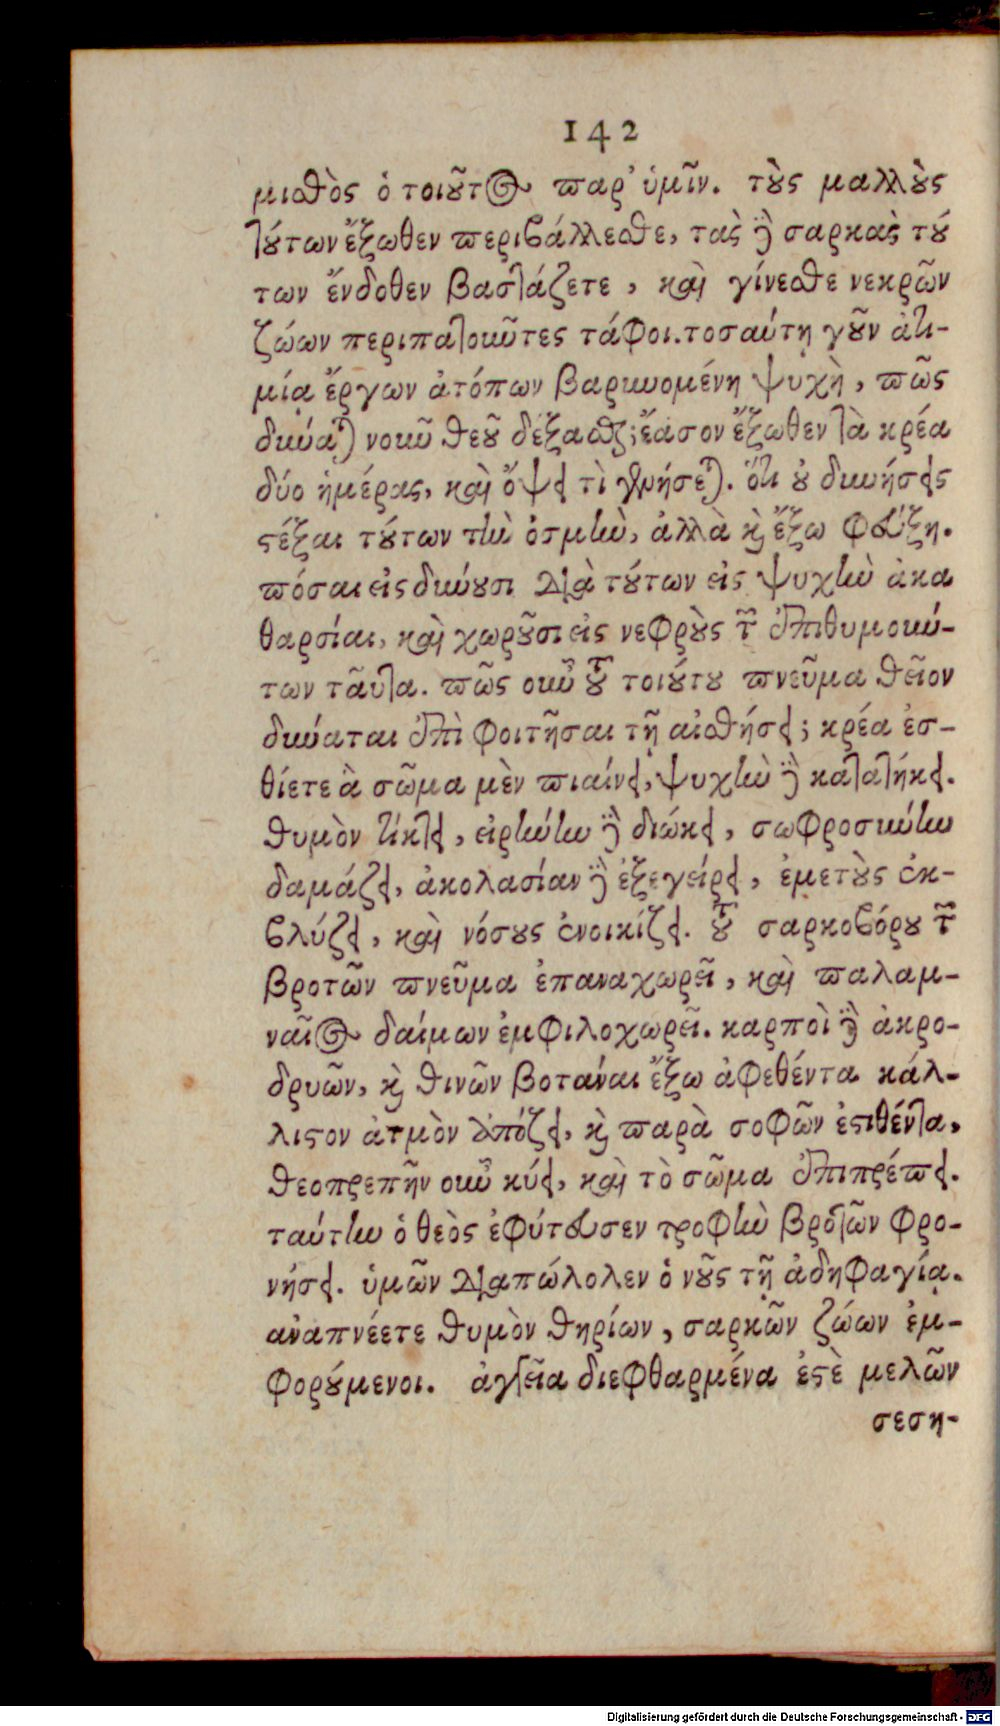 142
μισθὸς ὁ τοιοῦτος παρ' ὑμῖν. τοὺς μαλλοὺς
τούτων ἔξωθεν περιβάλλεσθε, τὰς δὲ σαρκὰς τού
των ἔνδοθεν βαστάζετε, καὶ γίνεσθε νεκρῶν
ζώων περιπατοῦντες τάφοι. τοσαύτῃ γοῦν ἀτι-
μίᾳ ἔργων ἀτόπων βαρυνομένη ψυχὴ, πῶς
δύναται νοῦν θεοῦ δέξασθαι; ἔασον ἔξωθεν τὰ κρέα
δύο ἡμέρας, καὶ ὄψει τὶ γενήσεται. ὅτι οὐ δυνήσεις
στέξαι τούτων τὴν ὀσμὴν, ἀλλὰ καὶ ἔξω φεύξῃ.
πόσαι εἰσδύνουσι διὰ τούτων εἰς ψυχὴν ἀκα
θαρσίαι, καὶ χωροῦσι εἰς νεφροὺς τῶν ἐπιθυμούν-
των ταῦτα. πῶς οὖν τοῦ τοιούτου πνεῦμα θεῖον
δύναται ἐπὶ φοιτῆσαι τῇ αἰσθήσει; κρέα ἐσ-
θίετε ἃ σῶμα μὲν πιαίνει, ψυχὴν δὲ κατατήκει.
θυμὸν τίκτει, εἰρήνην δὲ διώκει, σωφροσύνην
δαμάζει, ἀκολασίαν δὲ ἐξεγείρει, ἐμετοὺς ἐκ-
βλύζει, καὶ νόσους ἐνοικίζει. τοῦ σαρκοβόρου τῶν
βροτῶν πνεῦμα ἐπαναχωρεῖ, καὶ παλαμ-
ναῖος δαίμων ἐμφιλοχωρεῖ. καρποὶ δὲ ἀκρο-
δρυῶν, καὶ θινῶν βοτάναι ἔξω ἀφεθέντα κάλ-
λιστον ἀτμὸν ἀπόζει, καὶ παρὰ σοφῶν ἐστιθέντα,
θεοπρεπῆν οὖν κύει, καὶ τὸ σῶμα ἐπιπρέπει.
ταύτην ὁ θεὸς ἐφύτευσεν τροφὴν βροτῶν φρο-
νήσει. ὑμῶν διαπώλολεν ὁ νοῦς τῇ ἀδηφαγίᾳ.
ἀναπνέετε θυμὸν θηρίων, σαρκῶν ζώων ἐμ-
φορούμενοι. ἀγγεῖα διεφθαρμένα ἐστὲ μελῶν
σεση-
Digitalisierung gefördert durch die Deutsche Forschungsgemeinschaft - DFG